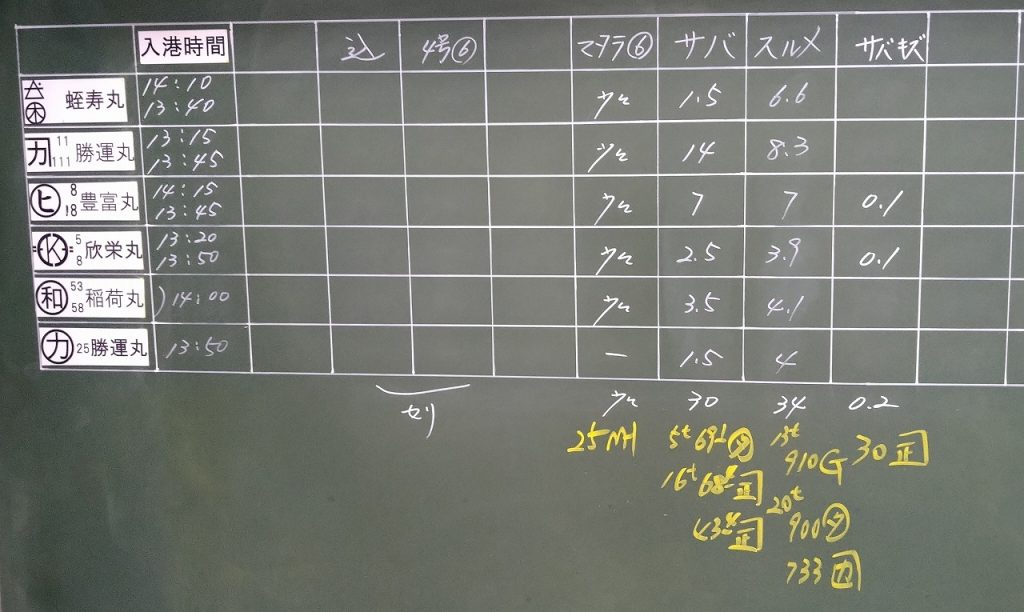 入港時間 込 4号⑥ マダラ⑥ サバ スルメ サバキズ
木 蛭寿丸 14:10 13:40 少々 1.5 6.6
カ 11 111 勝運丸 13:15 13:45 少々 14 8.3
ヒ 8 18 豊富丸 14:15 13:45 少々 7 7 0.1
K 5 8 欣栄丸 13:20 13:50 少々 2.5 3.9 0.1
和 53 58 稲荷丸 14:00 少々 3.5 4.1
カ 25 勝運丸 13:50 ー 1.5 4
セリ 少々 30 34 0.2
25 5t 13t 910G 30 正
16t 正 20t
正 900
733